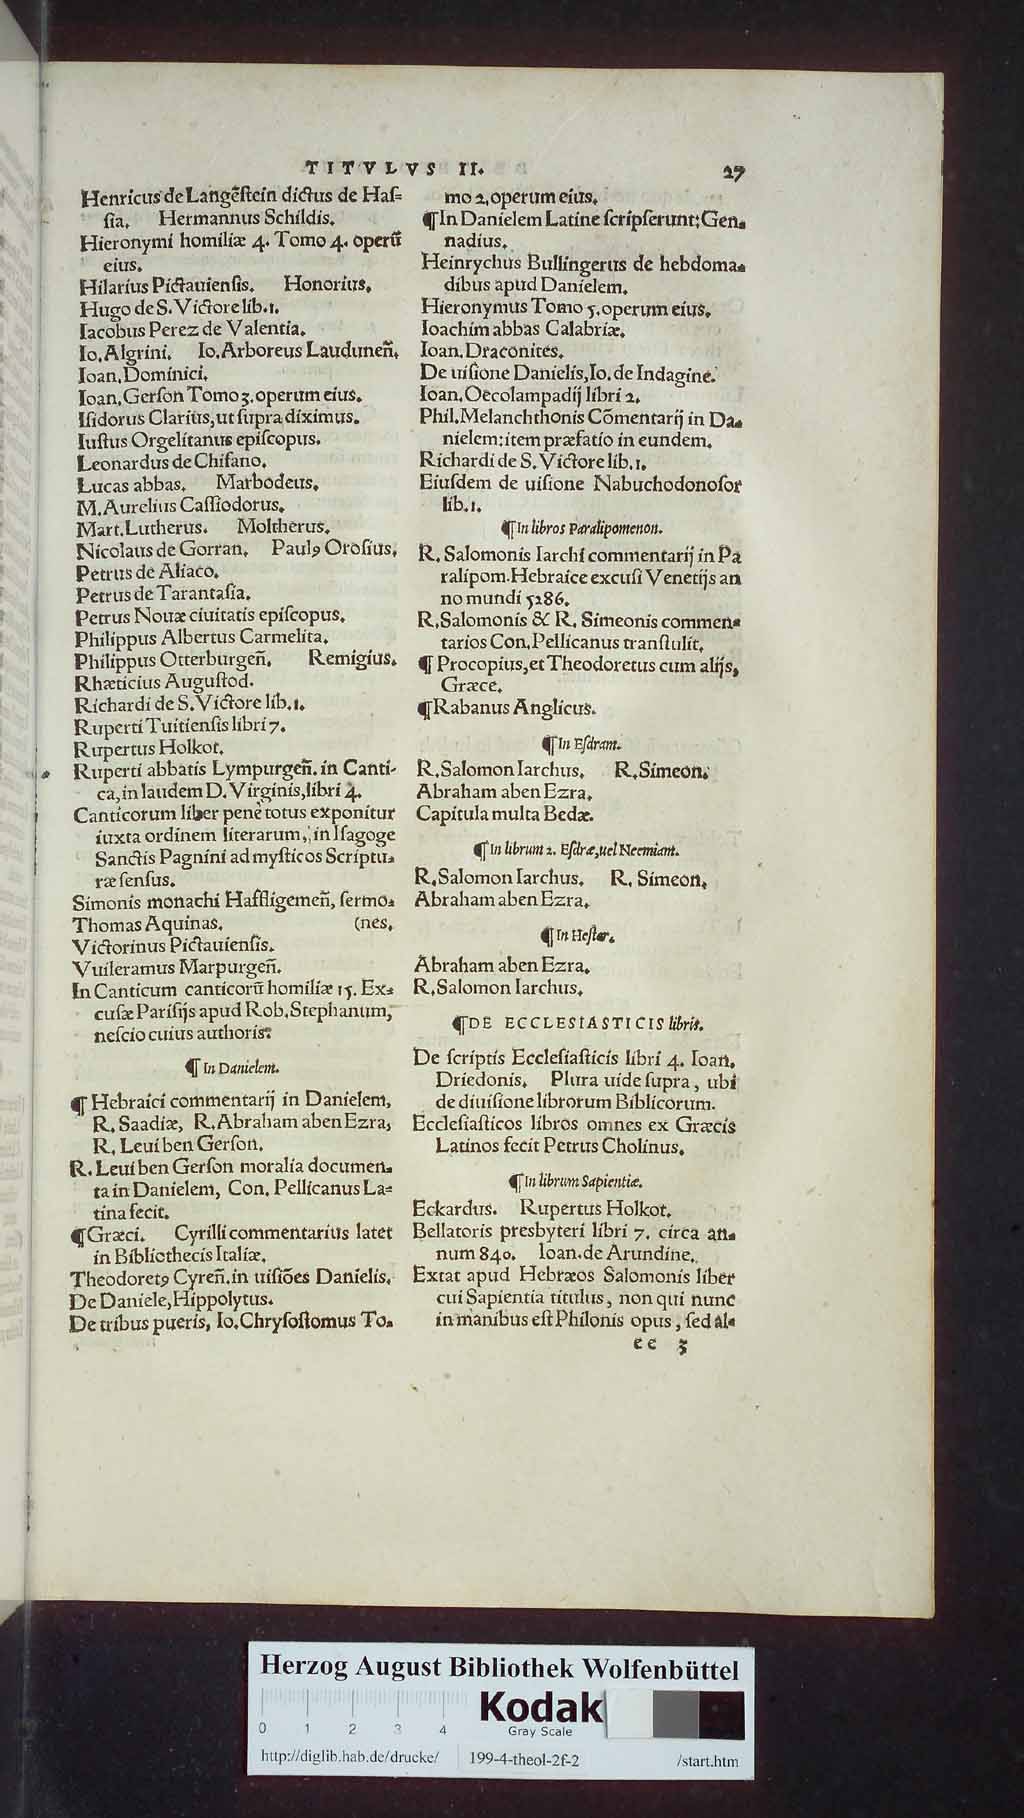 TITVLVS II.
27
Henricus de Langēſtein dictus de Haſ=
ſia. Hermannus Schildis.
Hieronymi homiliæ 4. Tomo 4. operū
eius.
Hilarius Pictauienſis. Honorius.
Hugo de S. Victore lib.1.
Iacobus Perez de Valentia.
Io. Algrini. Io. Arboreus Laudunen̄.
Ioan. Dominici.
Ioan. Gerſon Tomo 3. operum eius.
Iſidorus Clarius, ut ſupra diximus.
Iuſtus Orgelitanus epiſcopus.
Leonardus de Chifano.
Lucas abbas. Marbodeus.
M. Aurelius Caſſiodorus.
Mart. Lutherus. Moltherus.
Nicolaus de Gorran. Paulꝰ Oroſius.
Petrus de Aliaco.
Petrus de Tarantaſia.
Petrus Nouæ ciuitatis epiſcopus.
Philippus Albertus Carmelita.
Philippus Otterburgen̄. Remigius.
Rhæticius Auguſtod.
Richardi de S. Victore lib.1.
Ruperti Tuitienſis libri 7.
Rupertus Holkot.
Ruperti abbatis Lympurgen̄. in Canti-
ca, in laudem D. Virginis, libri 4.
Canticorum liber penè totus exponitur
iuxta ordinem literarum, in Iſagoge
Sanctis Pagnini ad myſticos Scriptu=
ræ ſenſus.
Simonis monachi Haffligemen̄, ſermo=
Thomas Aquinas. (nes.
Victorinus Pictauienſis.
Vuileramus Marpurgen̄.
In Canticum canticorū homiliæ 15. Ex=
cuſæ Pariſijs apud Rob. Stephanum,
neſcio cuius authoris.
¶ In Danielem.
¶ Hebraici commentarij in Danielem,
R. Saadiæ, R. Abraham aben Ezra,
R. Leui ben Gerſon.
R. Leui ben Gerſon moralia documen=
ta in Danielem, Con. Pellicanus La=
tina fecit.
¶ Græci. Cyrilli commentarius latet
in Bibliothecis Italiæ.
Theodoretꝰ Cyren̄. in uiſiōes Danielis.
De Daniele, Hippolytus.
De tribus pueris, Io. Chryſoſtomus To=
mo 2. operum eius.
¶ In Danielem Latine ſcripſerunt: Gen=
nadius.
Heinrychus Bullingerus de hebdoma=
dibus apud Danielem.
Hieronymus Tomo 5. operum eius.
Ioachim abbas Calabriæ.
Ioan. Draconites.
De uiſione Danielis, Io. de Indagine.
Ioan. Oecolampadij libri 2.
Phil. Melanchthonis Cōmentarij in Da=
nielem: item præfatio in eundem.
Richardi de S. Victore lib.1.
Eiuſdem de uiſione Nabuchodonoſor
lib.1.
¶ In libros Paralipomenon.
R. Salomonis Iarchi commentarij in Pa
ralipom. Hebraice excuſi Venetijs an
no mundi 5286.
R. Salomonis & R. Simeonis commen=
tarios Con. Pellicanus tranſtulit.
¶ Procopius, et Theodoretus cum alijs,
Græce.
¶ Rabanus Anglicus.
¶ In Eſdram.
R. Salomon Iarchus. R. Simeon.
Abraham aben Ezra.
Capitula multa Bedæ.
¶ In librum 2. Eſdræ, uel Neemiam.
R. Salomon Iarchus. R. Simeon.
Abraham aben Ezra.
¶ In Heſter.
Abraham aben Ezra.
R. Salomon Iarchus.
¶ DE ECCLESIASTICIS libris.
De ſcriptis Eccleſiaſticis libri 4. Ioan.
Driedonis. Plura uide ſupra, ubi
de diuiſione librorum Biblicorum.
Eccleſiaſticos libros omnes ex Græcis
Latinos fecit Petrus Cholinus.
¶ In librum Sapientiæ.
Eckardus. Rupertus Holkot.
Bellatoris presbyteri libri 7. circa an=
num 840. Ioan. de Arundine.
Extat apud Hebræos Salomonis liber
cui Sapientia titulus, non qui nunc
in manibus eſt Philonis opus, ſed al=
ee 3
Herzog August Bibliothek Wolfenbüttel
0 1 2 3 4
Kodak
Gray Scale
http://diglib.hab.de/drucke/ 199-4-theol-2f-2 /start.htm